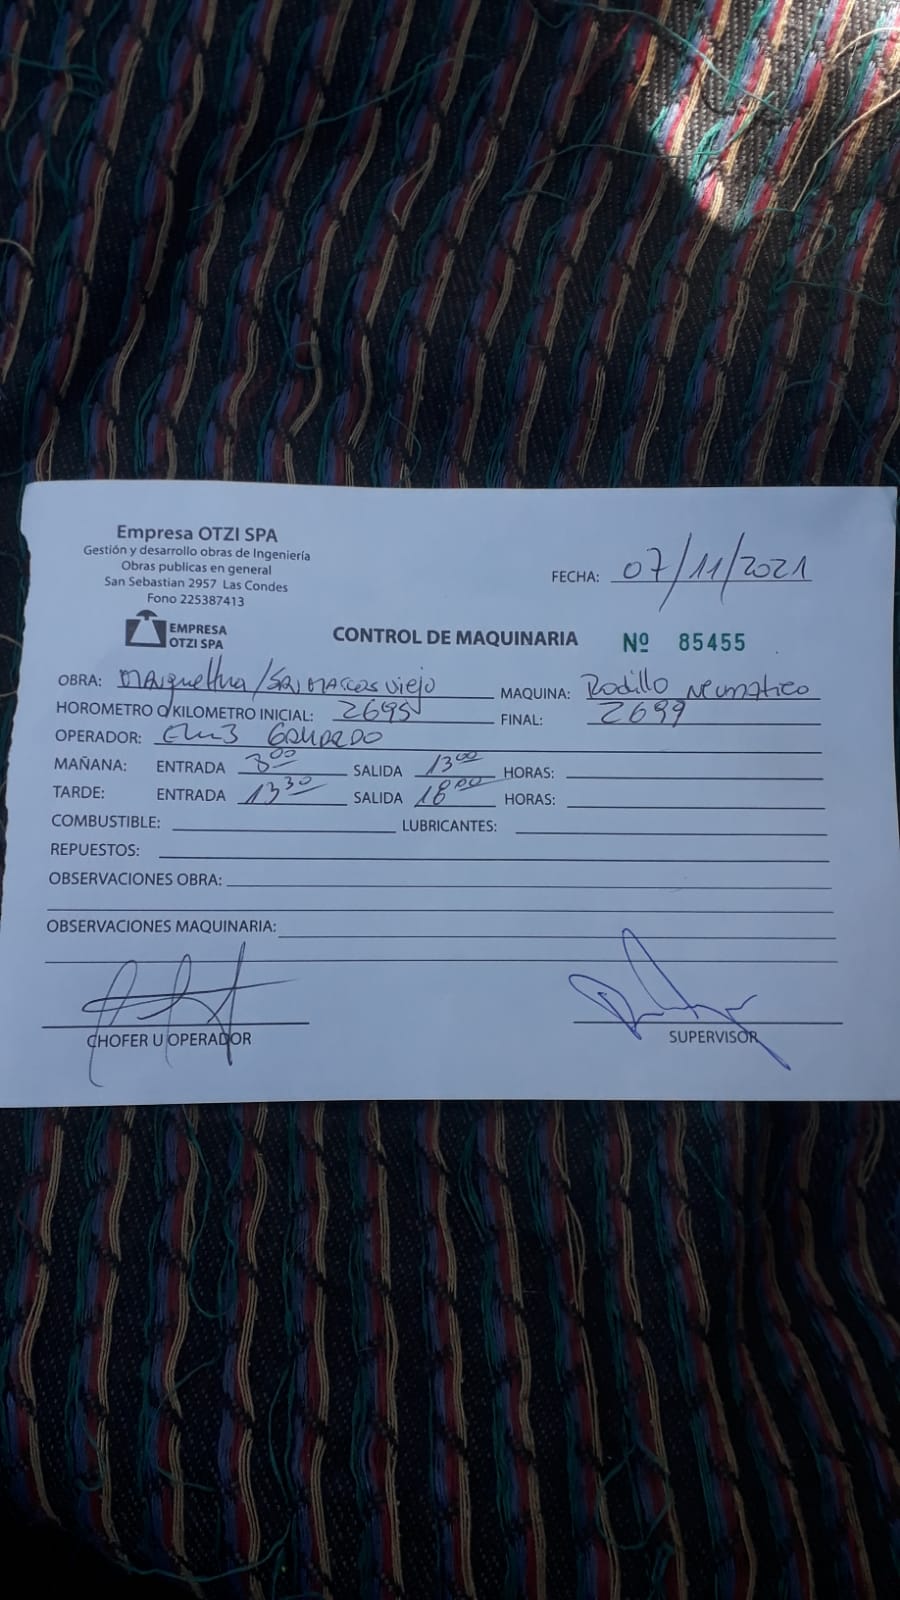 Empresa OTZI SPA
Gestión y desarrollo obras de Ingeniería
Obras publicas en general
San Sebastian 2957 Las Condes
Fono 225387413
EMPRESA
OTZI SPA
FECHA: 07/11/2021
CONTROL DE MAQUINARIA Nº 85455
OBRA: /SAN MARCOS Viejo MAQUINA: Rodillo Neumatico
HOROMETRO O/KILOMETRO INICIAL: 2695 FINAL: 2699
OPERADOR:
MAÑANA: ENTRADA 8:00 SALIDA 13:00 HORAS:
TARDE: ENTRADA 13:30 SALIDA 18:00 HORAS:
COMBUSTIBLE: LUBRICANTES:
REPUESTOS:
OBSERVACIONES OBRA:
OBSERVACIONES MAQUINARIA:
CHOFER U OPERADOR SUPERVISOR